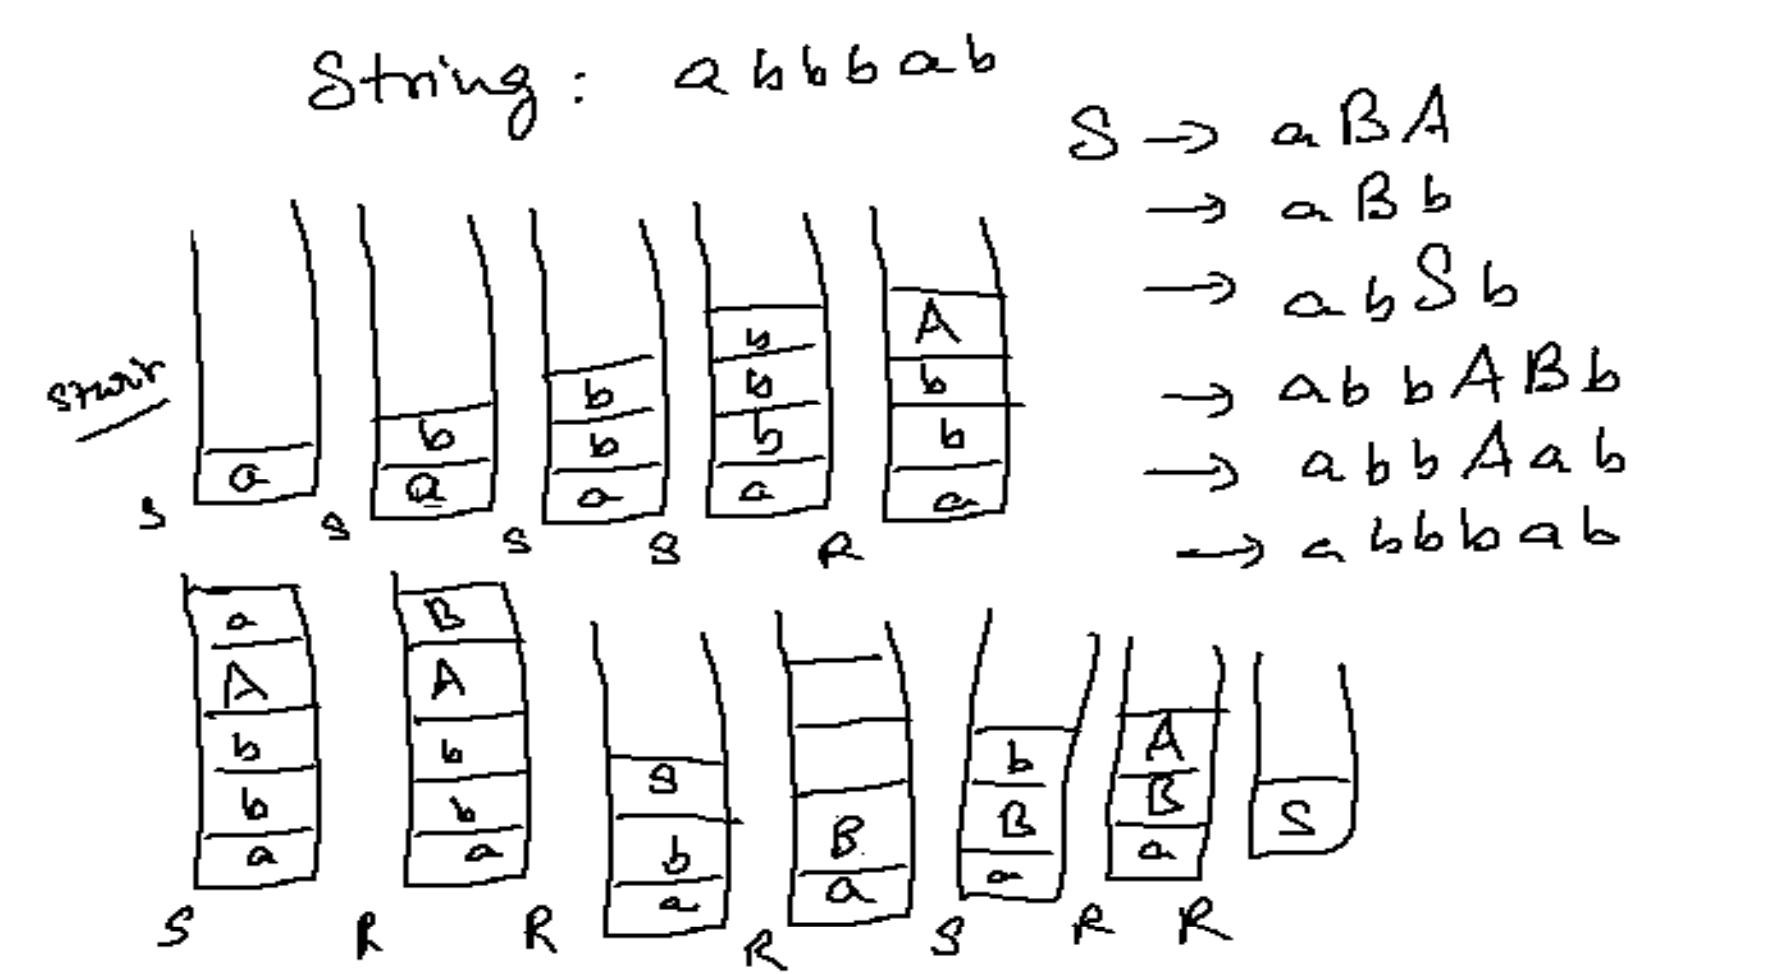 String: abbbab
S → aBA
→ aBb
→ abSb
→ abbABb
→ abbAab
→ abbbab
Start
a
b
a
b
b
a
b
b
b
a
A
b
b
a
S S S S R
a
A
b
b
a
B
A
b
b
a
S
b
a
B
a
b
B
a
A
B
a
S
S R R R S R R